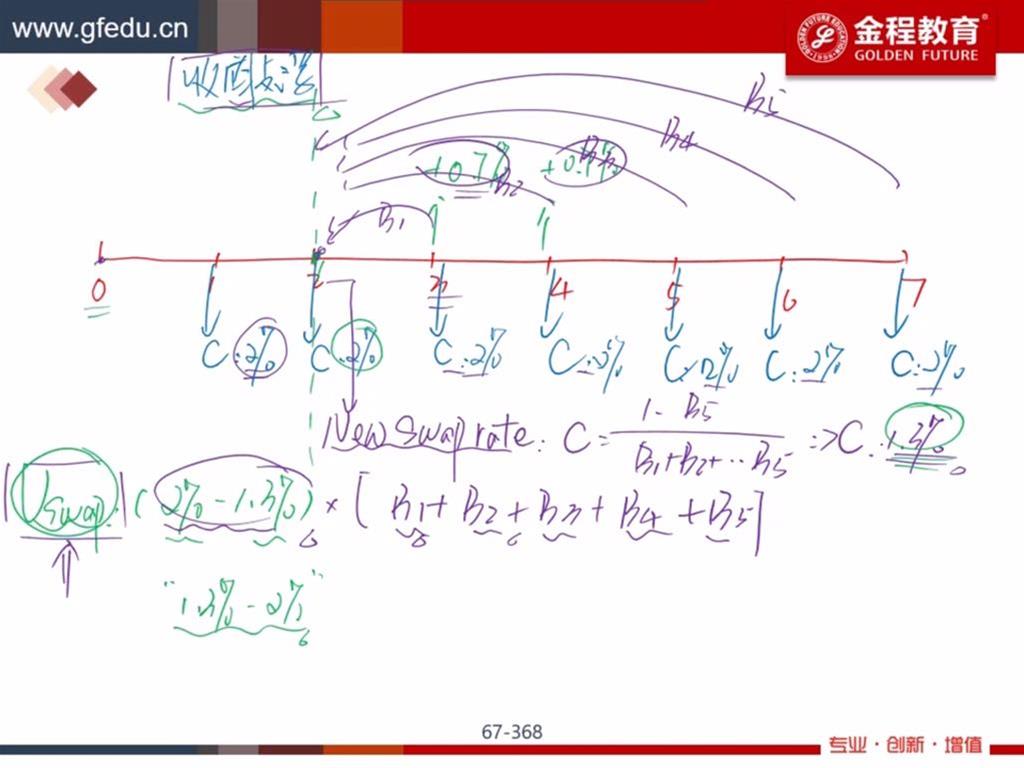 www.gfedu.cn
金程教育®
GOLDEN FUTURE
B5
B4
+0.7% +0.7%
B3
B2
B1
0 1 2 3 4 5 6 7
C:2% C:2% C:2% C:2% C:2% C:2% C:2%
New Swap rate: C = 1 - B5 / B1+B2+...B5 => C:1.3%
Vswap: (2%-1.3%) × [B1+B2+B3+B4+B5]
"1.3%-2%"
67-368
专业·创新·增值